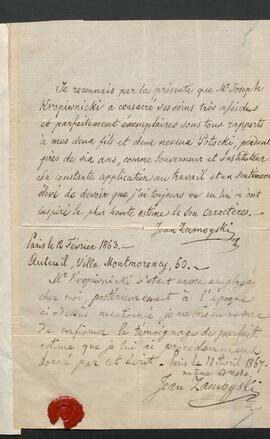 Je reconnais par la présente que Mr Joseph
Kropiwnicki a consacré ses soins très assidus
et parfaitement exemplaires sous tous rapports
à mes deux fils et deux neveux Potocki, pendant
près de six ans, comme Gouverneur et Instituteur
Sa constante application au travail et un sentiment
élevé de devoir que j'ai toujours vu en lui m'ont
inspiré la plus haute estime de son caractère.
Jean Zamoyski
Paris le 12 Février 1863.
Auteuil, Villa Montmorency, 60.
Mr Kropiwnicki s'étant encore employé
chez moi, postérieurement à l'époque
ci-dessus mentionnée, je
de confirmer le témoignage de parfaite
estime que je lui ai précédemment
donné par cet écrit. Paris le 10 Avril 1867.
même adresse.
Jean Zamoyski